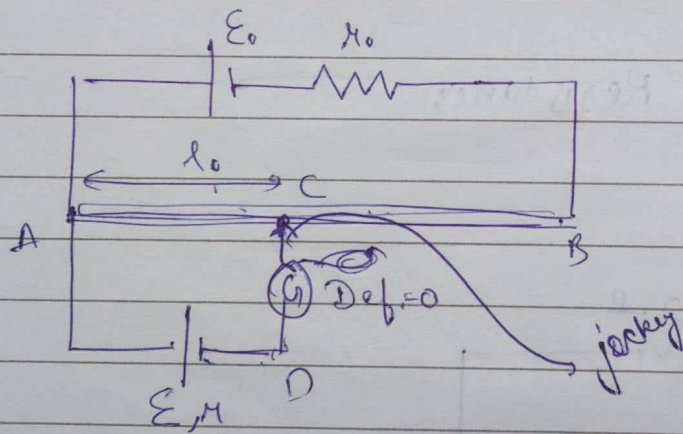 ε₀ r₀
l₀
C
A
B
G Def.=0
jocky
D
ε,r